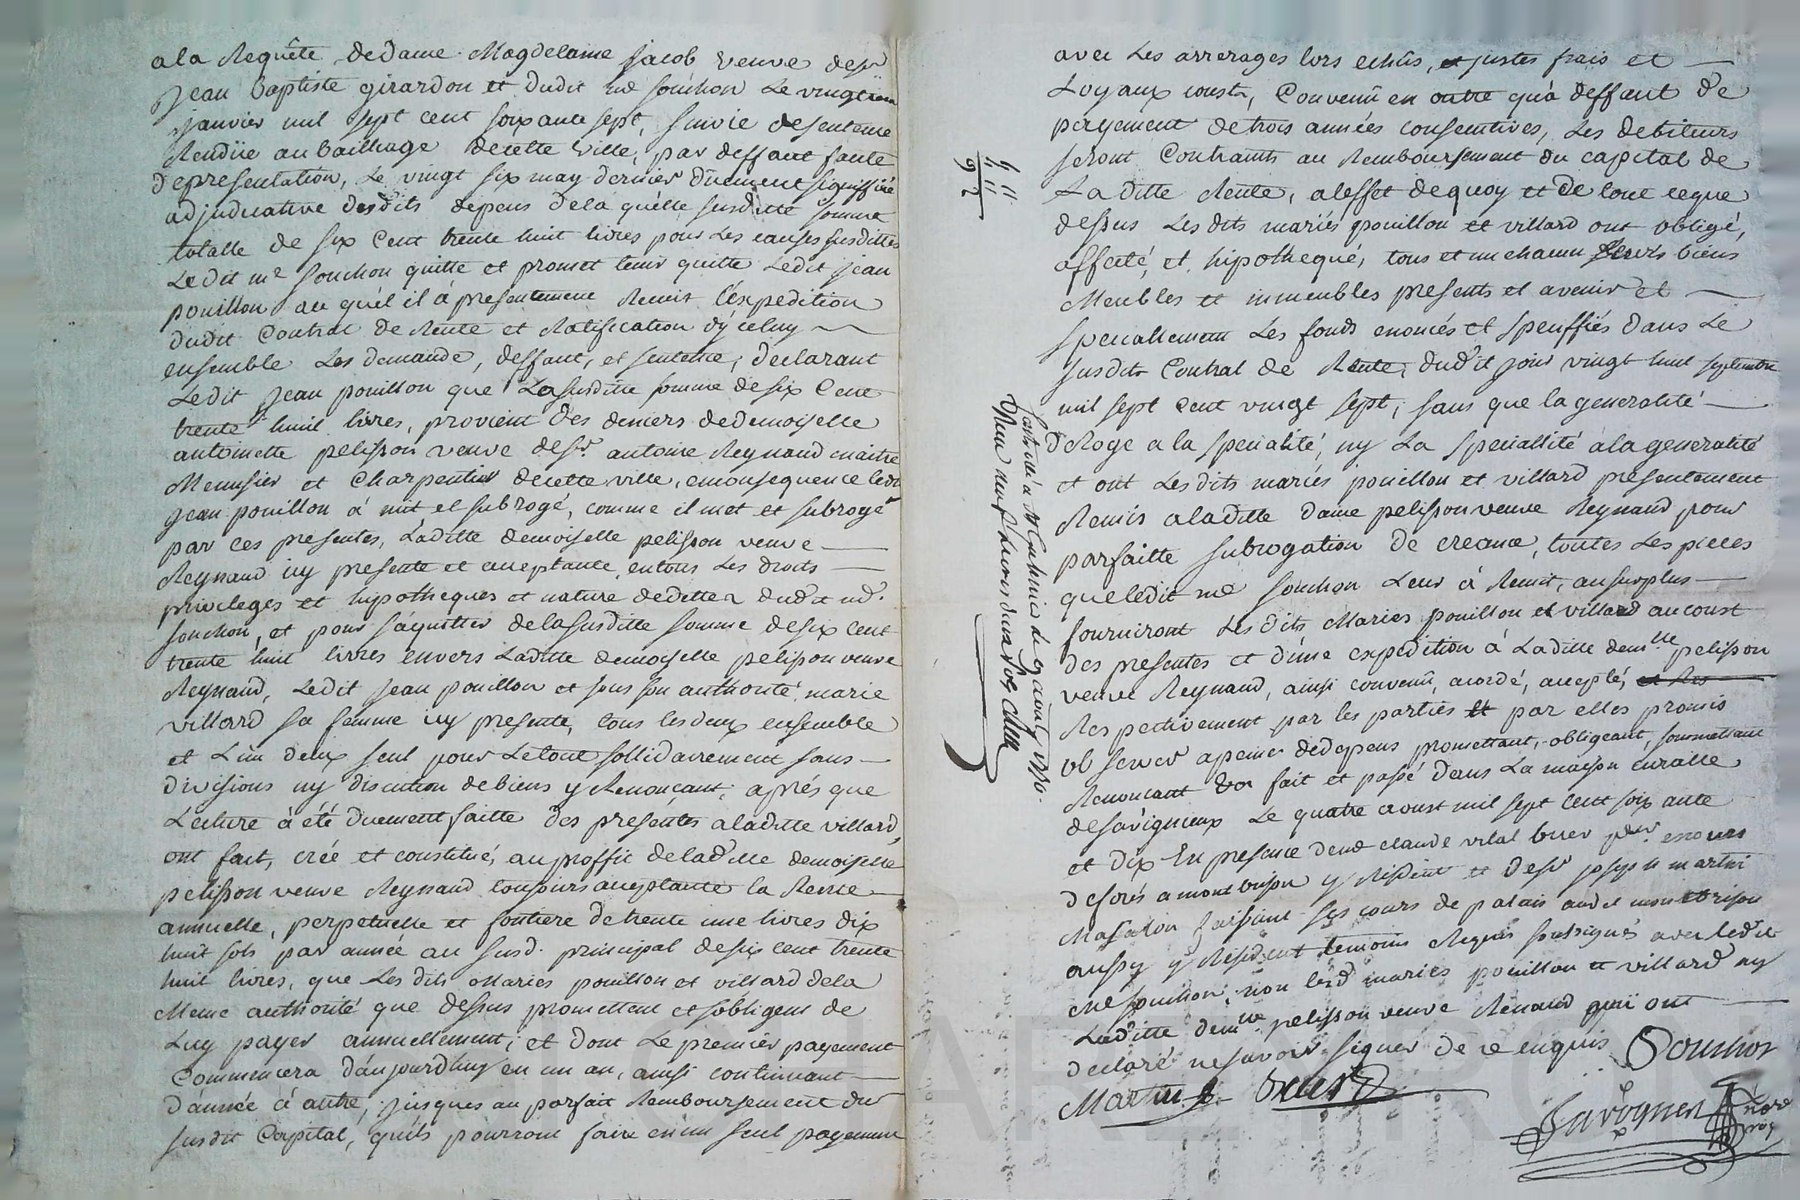 a la Requête de dame Magdelaine Jacob veuve de sr
Jean Baptiste girardon et dudit me souchon Le vingtieme
Janvier mil sept cent soixante sept, suivie de sentence
Rendüe au Bailliage de cette ville, par deffaut faute
de presentation, Le vingt six may dernier düement signiffiée
adjudicative desdits depens de la quelle susditte somme
totalle de six cent trente huit livres pour Les causes susdittes
Le dit me souchon quitte et promet tenir quitte Ledit jean
pouillon au quel il à presentement Remis L'expedition
dudit Contrat de Rente et Ratification d'yceluy
ensemble Les demande, deffaut, et sentence, declarant
Ledit Jean pouillon que La susditte somme de six Cent
trente huit livres, provient des deniers de demoiselle
antoinette pelisson veuve de sr. antoine Reynaud maitre
Menusier et Charpentier de cette ville, en consequence ledt
Jean pouillon à mit et subrogé, comme il met et subroge
par ces presentes, Laditte demoiselle pelisson veuve
Reynaud icy presente et acceptante en tous Les droits
privileges et hypotheques et nature de dette dudit md.
souchon, et pour s'aquitter de la susditte somme de six cent
trente huit livres envers Laditte demoiselle pelisson veuve
Reynaud, Ledit jean pouillon et sous son authorité marie
villard sa femme icy presente, tous les deux ensemble
et L'un deux seul pour Le tout sollidairement sans
divisions ny discution de biens y Renonçant, aprés que
Lecture à été düement faitte des presentes a laditte villard,
ont fait, créé et constitué, au proffit de laditte demoiselle
pelisson veuve Reynaud toujours acceptante la Rente
annuelle, perpetuelle et fontiere de trente une livres dix
huit sols par année au susd. principal de six cent trente
huit livres, que Les dits Maries pouillon et villard de la
Meme authorité que dessus promettent et s'obligent de
Luy payer annuellement, et dont Le premier payement
Commencera d'aujourdhuy en un an, ainsi continuant
d'année à autre, jusques au parfait Remboursement du
susdit Capital, qu'ils pourront faire en un seul payement
avec Les arrerages lors echûs, justes frais et
Loyaux consts, Convenû en outre qu'à deffaut de
payement de trois années consecutives, Les debiteurs
seront Contraints au Remboursement du capital de
La ditte Rente, a leffet de quoy et de tout ceque
dessus Les dits mariés pouillon et villard ont obligé,
affecté, et hipothequé, tous et un chacun leurs biens
Meubles et immeubles presents et avenir et
speciallement Les fonds enoncés et speciffiés dans Le
susdit Contrat de Rente, dudit jour vingt huit septembre
mil sept Cent vingt sept, sans que la generalité
deroge a la specialité, ny La speciallité a la generalité
et ont Les dits mariés pouillon et villard presentement
Remis a laditte dame pelisson veuve Reynaud pour
parfaitte subrogation de creance, toutes Les pieces
que ledit me souchon Leur à Remis, au surplus
fourniront Les dits Maries pouillon et villard au coust
des presentes et d'une expedition à Laditte demlle pelisson
veuve Reynaud, ainsi convenû, acordé, accepté,
Respectivement par les parties et par elles promis
observer a peine de depens promettant, obligeant, soumettant
Renoncant fait et passé dans La maison curialle
de savigneux Le quatre aoust mil sept Cent soix ante
et dix En presence de me claude vital buer pour es cours
de forés a montbrison y Resident et de sr joseph martin
Masalon faisant ses cours de palais audit montbrison
aussy y Resident temoins Requis soussignés avec ledit
me souchon, non lesd maries pouillon et villard ny
Laditte demlle pelisson veuve Renaud qui ont
declaré ne savoir signer de ce enquis Souchon
Martin